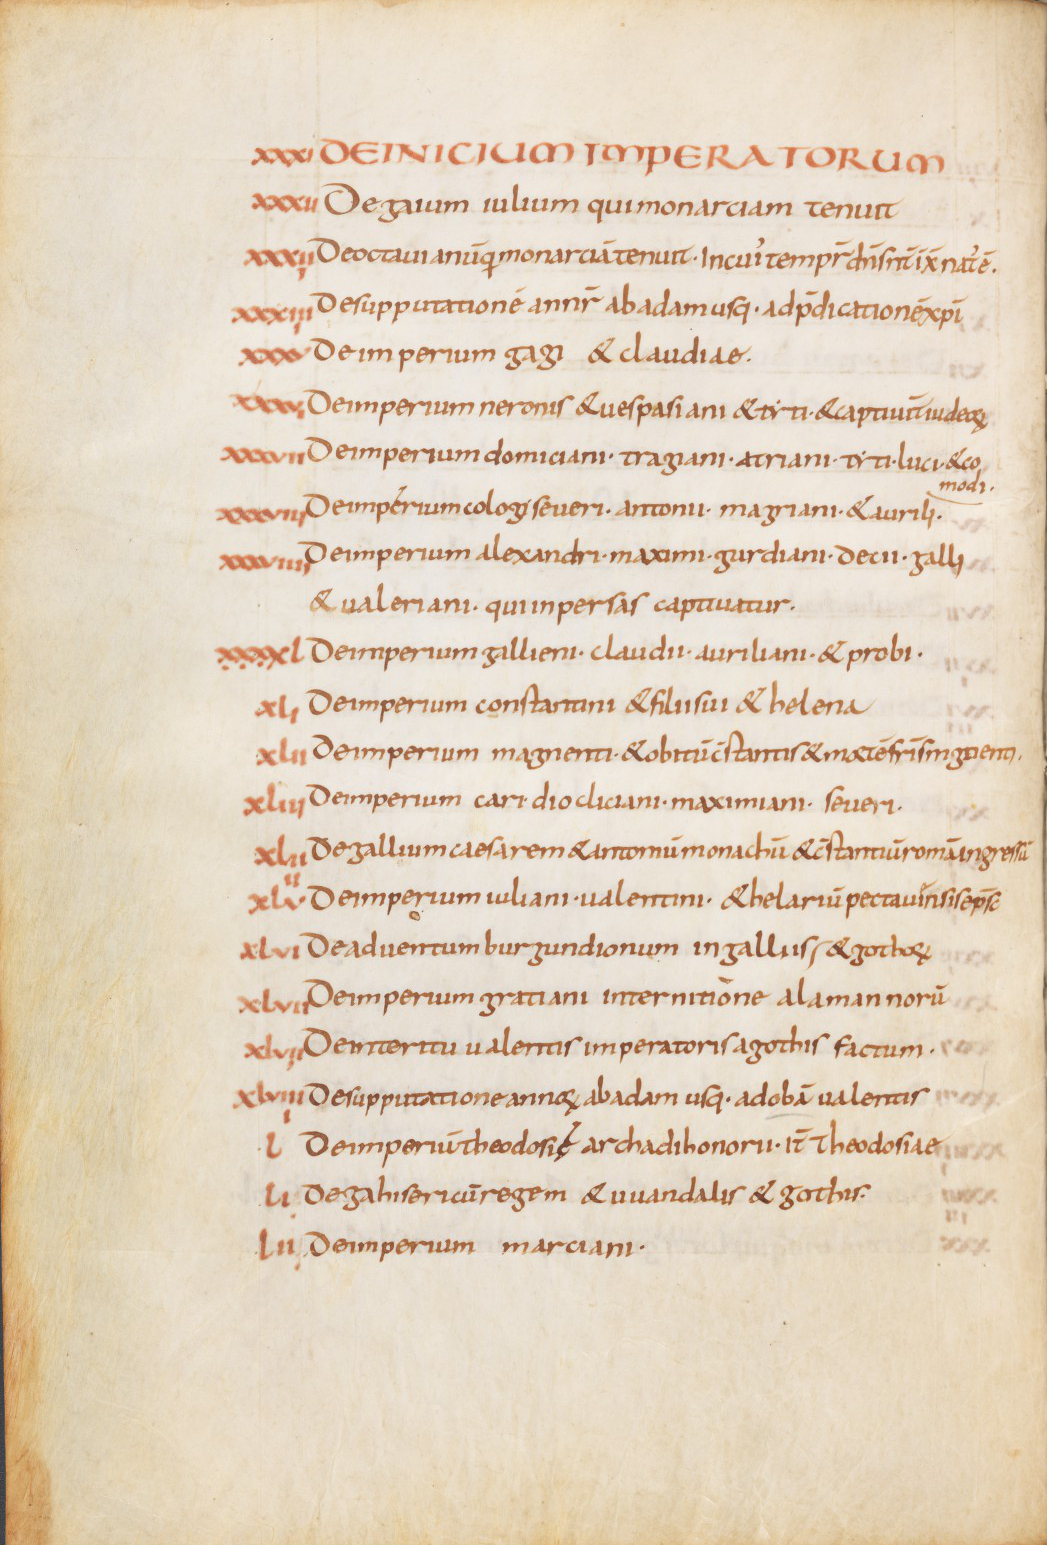 xxxi DEINICIUM IMPERATORUM
xxxii De gaium iulium qui monarciam tenuit
xxxiii De octauianū q̄ monarciā tenuit · In cui' tempr̄ dn̄s nt̄ ih̄x nat' ē .
xxxiiii De supputationē annr̄ ab adam usq · ad p̄dicationē xp̄i
xxxv De imperium gagi & claudiae .
xxxvi De imperium neronis & uespasiani & tyti · & captiuit̄ iudeoꝝ
xxxvii De imperium domiciani · tragiani · atriani · tyti · luci · & co
modi .
xxxviii De imperium cologi seueri · antonii · magriani · & aurili .
xxxviiii De imperium alexandri · maximi · gurdiani · decii · galli
& ualeriani · qui in persas captiuatur .
xxxxl De imperium gallieni · claudii · auriliani · & probi ·
xli De imperium constantini & filii sui & helena
xlii De imperium magnenti · & obitū c̄stantis & mortē fr̄is
xliii De imperium cari · diocliciani · maximiani · seueri .
xlii
ii De gallium caesarem & antoniū monachū & c̄stantiū romā ingressū
xlv De imperium iuliani · ualentini · & helariū pectauinsis ep̄sc
xlvi De aduentum burgundionum in gallus & gothoꝝ
xlvii De imperium gratiani internitione alamannorū
xlvii De interitu ualentis imperatoris a gothis factum .
xlviiii De supputatione annoꝝ ab adam usq · ad obā ualentis
l De imperiū theodosi & archadi honorii · it̄ theodosiae
li De gahisericū regem & uuandalis & gothis .
lii De imperium marciani ·